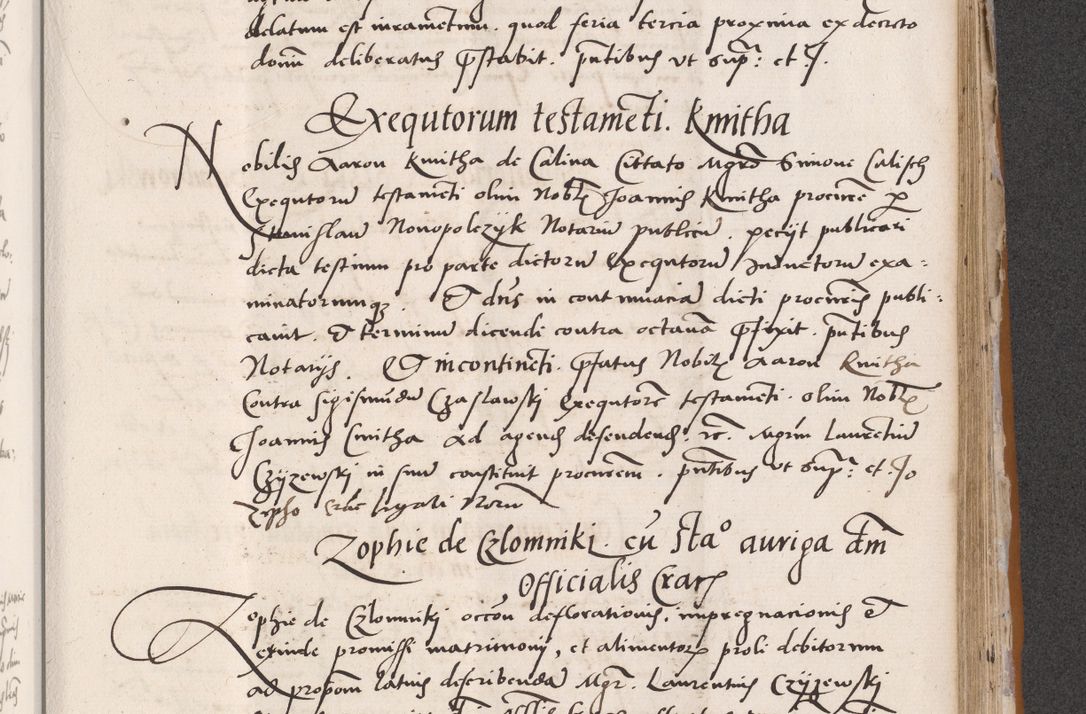 delatum est iuramentum. quod feria tercia proxima ex decreto
domi deliberatus p̄stabit. pn̄tibus vt supᵃ: et J.
Exequtorum testamēti. Kmitha
Nobilis Aaron Kmitha de Calina Cittato Mgrō Simone Calisch
Exequtorū testamēti olim Nobīs Joannis Kmitha procurē p
Stanislaū Novopolczyk Notariū publicū. petijt publicari
dicta testium pro parte dictorū Exequtorū Inductorū exa=
minatorumqꝫ Et dn̄s in contumaciā dicti procuris publi=
cavit. Et terminū dicendi contra octavā p̄fixit. pn̄tibus
Notarijs. Et incontinēti. p̄fatus Nobilꝫ Aaron Kmitha
Contra Sigismūdū Czaslawskj Exequtorē testamēti. olim Nobīs
Joannis Cmitha Ad agendꝫ defendendꝫ. rc̄. Mgrm̄ Laurētiū
Czyzewskj in suū constituit procurem. pn̄tibus vt supᵃ: et. Jo
Zepho
Zophie de Czlomnikj. cū Staᵒ auriga dm̄
Officialis Crac̄
Zophie de Czlomnikj occōn deflorationis, impregnacionis et
exinde promissi matrimonij, et alimentorꝝ proli debitorum
ad propōm latius describendā Mgr̄. Laurentius Czyzewskj